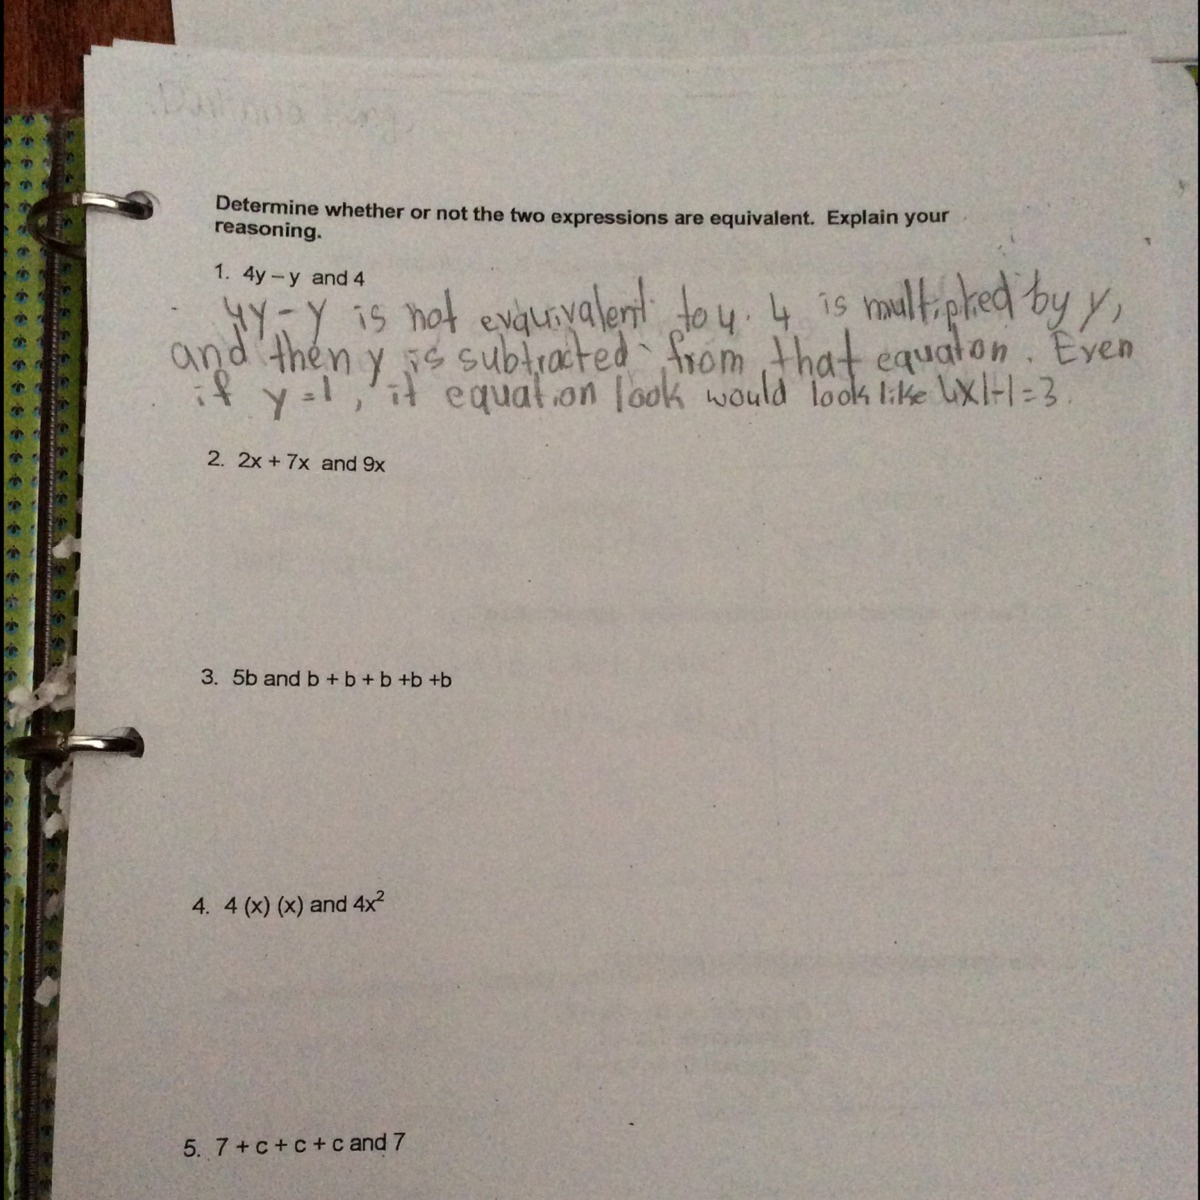 Determine whether or not the two expressions are equivalent. Explain your
reasoning.
1. 4y – y and 4
4y-y is not evquivalent to 4. 4 is multiplied by y,
and then y is subtracted from that equaton. Even
if y=1, it equation look would look like 4x1-1=3.
2. 2x + 7x and 9x
3. 5b and b + b + b +b +b
4. 4 (x) (x) and 4x²
5. 7 + c + c + c and 7